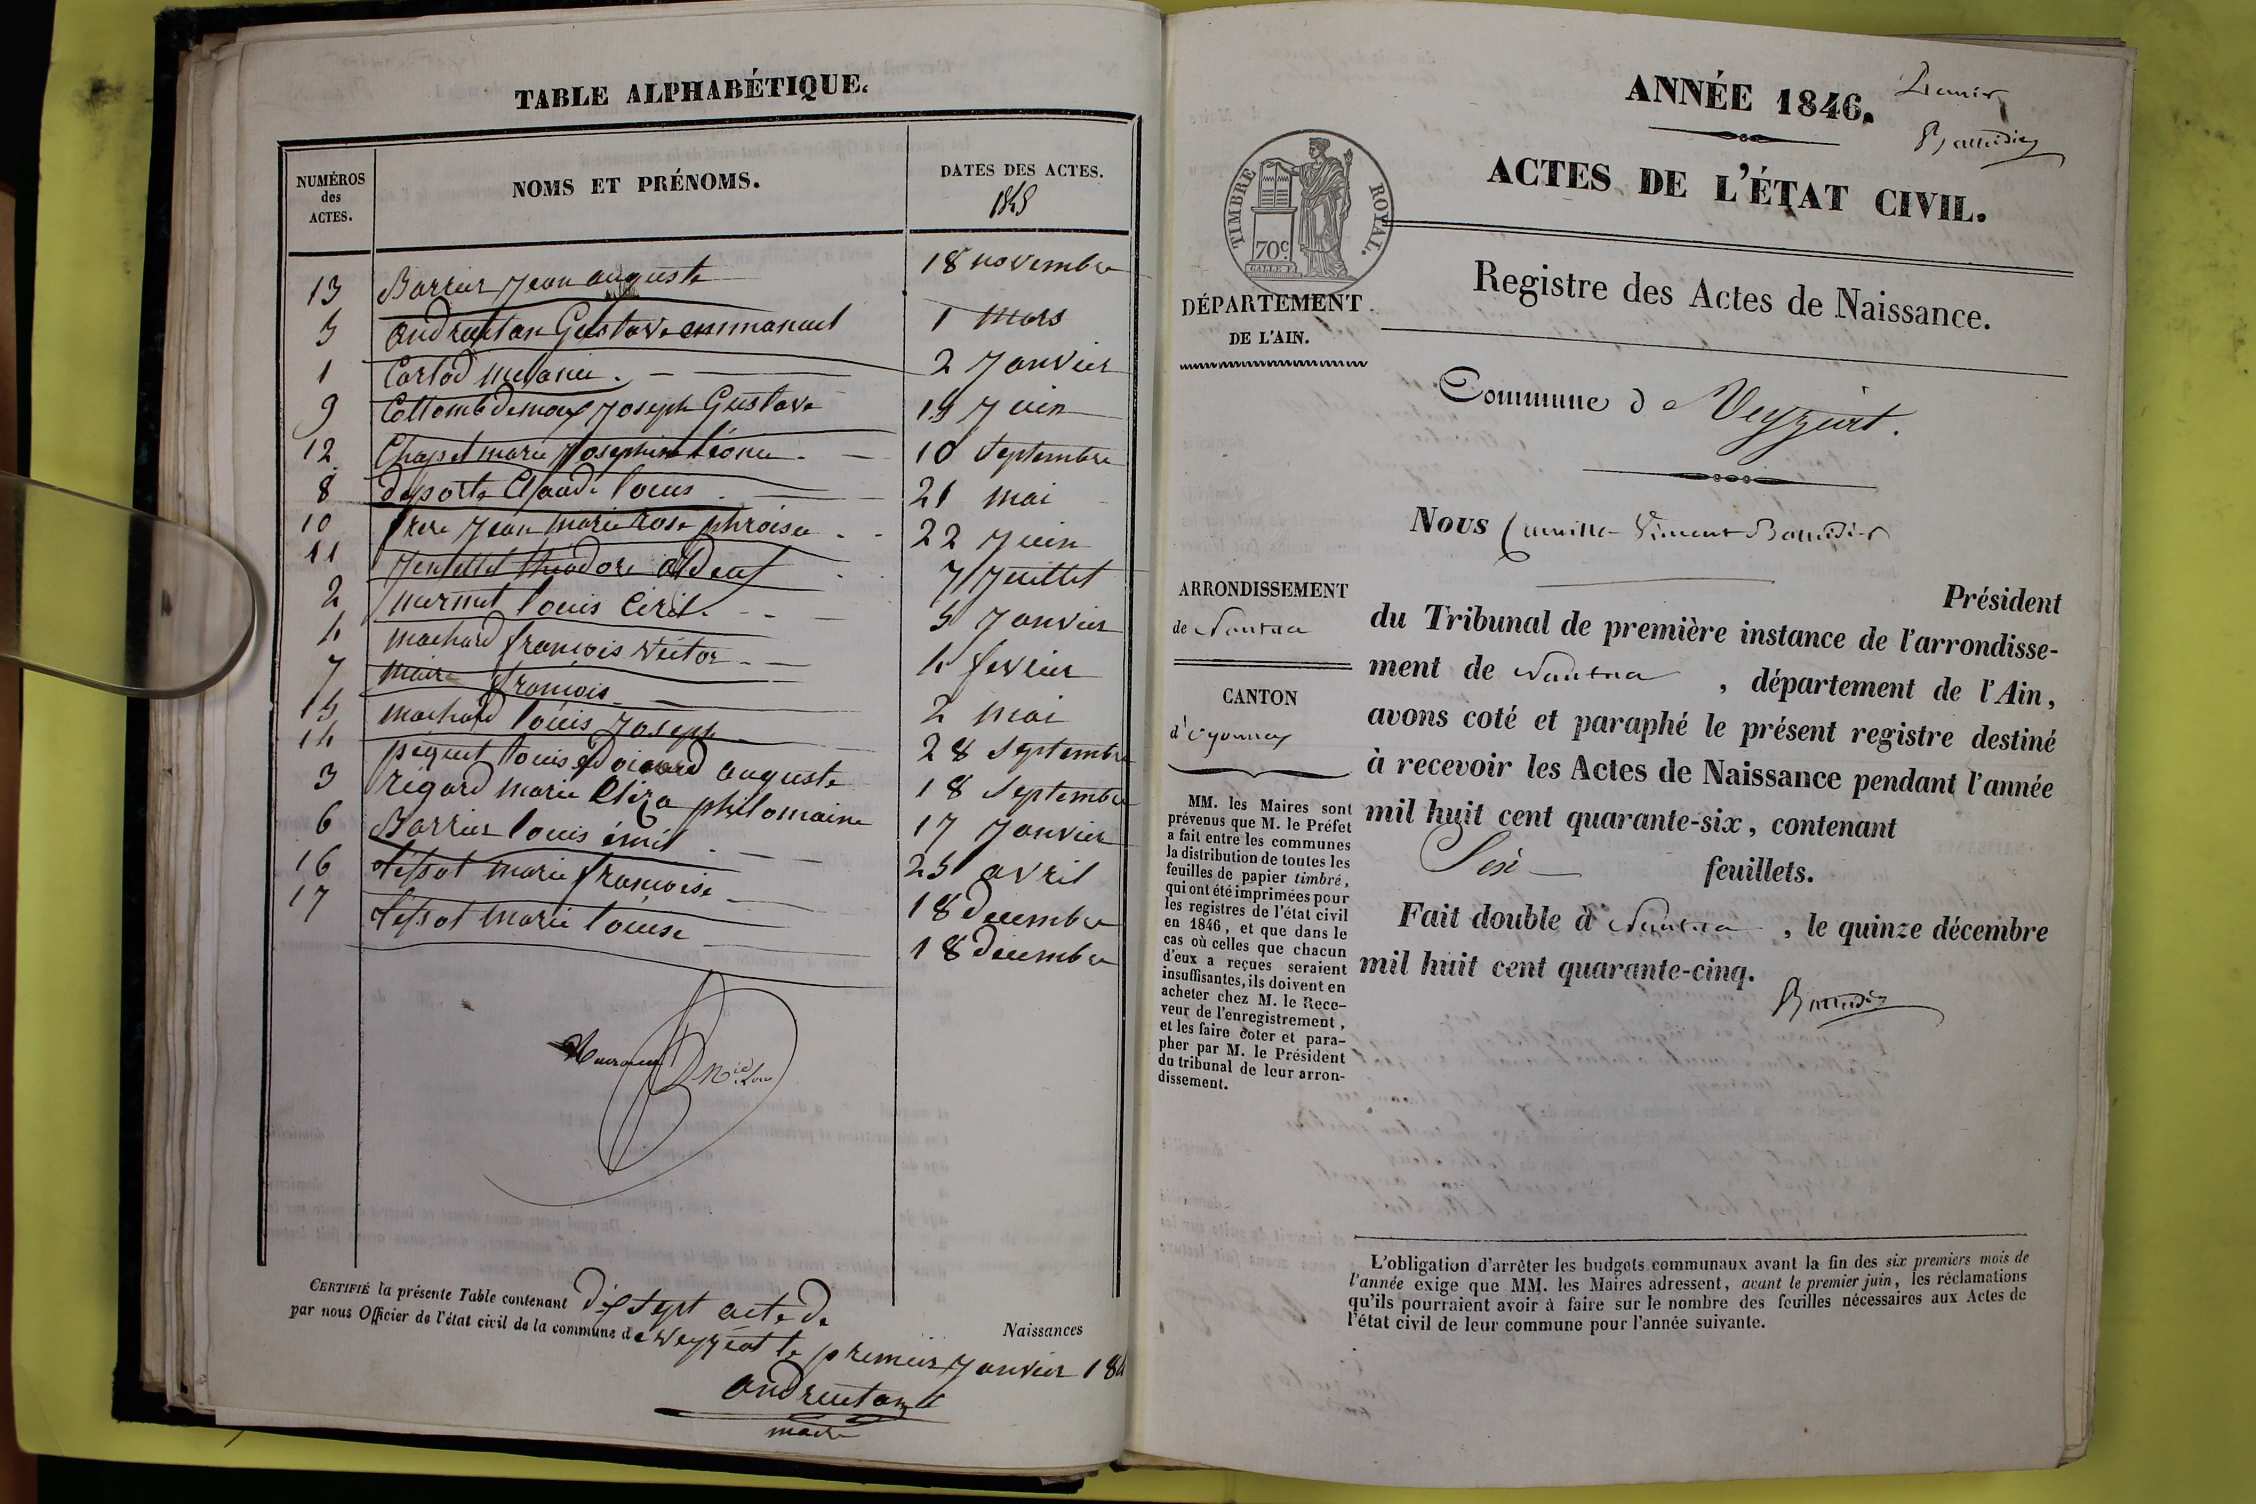 TABLE ALPHABÉTIQUE.
NUMÉROS
des
ACTES.
NOMS ET PRÉNOMS.
DATES DES ACTES.
1845
13 Barrier Jean auguste 18 novembre
5 andruetan Gustave emmanuel 1 mars
1 Carlod melanie. 2 Janvier
9 Collombdemoux Joseph Gustave 15 Juin
12 Chapel marie Josephine Léonie 10 Septembre
8 deporte Claude louis 21 mai
10 frere Jean marie rose phroisee 22 Juin
11 théodore 7 Juillet
2 mermet louis Ciril. 5 Janvier
4 machard françois victor 4 fevrier
7 maire françois 2 mai
15 machard louis Joseph 28 Septembre
14 péquet louis edouard auguste 18 Septembre
3 rigard marie Eliza philomaine 17 Janvier
6 Barrier louis émil 25 avril
16 tissot marie françoise 18 decembre
17 tissot marie louise 18 decembre
CERTIFIÉ la présente Table contenant dix sept acte de Naissances
par nous Officier de l'état civil de la commune de Veyziat le premier Janvier 184
andruetan
maire
ANNÉE 1846.
Premier
ACTES DE L'ÉTAT CIVIL.
TIMBRE ROYAL.
70c
DÉPARTEMENT
DE L'AIN.
Registre des Actes de Naissance.
Commune de Veyziat.
Nous Camille Vincent Baudier
Président
ARRONDISSEMENT
de Nantua
CANTON
d'oyonnax
du Tribunal de première instance de l'arrondisse-
ment de Nantua, département de l'Ain,
avons coté et paraphé le présent registre destiné
à recevoir les Actes de Naissance pendant l'année
mil huit cent quarante-six, contenant
Six feuillets.
Fait double à Nantua, le quinze décembre
mil huit cent quarante-cinq.
MM. les Maires sont
prévenus que M. le Préfet
a fait entre les communes
la distribution de toutes les
feuilles de papier timbré,
qui ont été imprimées pour
les registres de l'état civil
en 1846, et que dans le
cas où celles que chacun
d'eux a reçues seraient
insuffisantes, ils doivent en
acheter chez M. le Rece-
veur de l'enregistrement,
et les faire coter et para-
pher par M. le Président
du tribunal de leur arron-
dissement.
L'obligation d'arrêter les budgets communaux avant la fin des six premiers mois de
l'année exige que MM. les Maires adressent, avant le premier juin, les réclamations
qu'ils pourraient avoir à faire sur le nombre des feuilles nécessaires aux Actes de
l'état civil de leur commune pour l'année suivante.